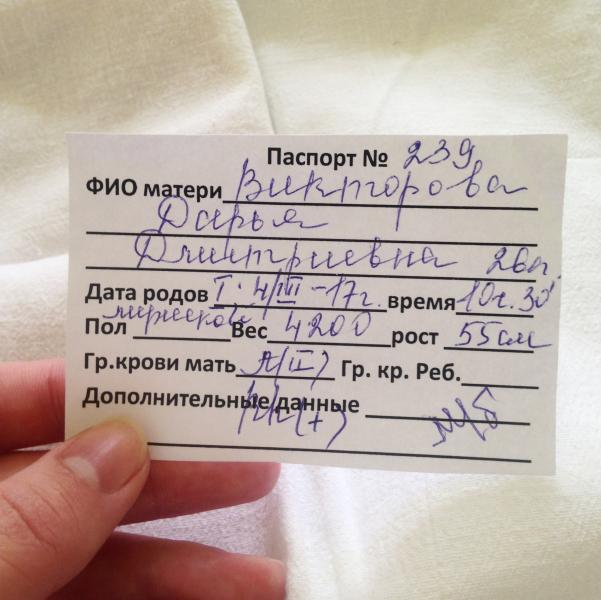 Паспорт № 239
ФИО матери Викторова
Дарья
Дмитриевна 26л.
Дата родов I. 4/III-17г. время 10ч.30'
Пол мужской Вес 4200 рост 55см
Гр.крови мать А(II) Гр. кр. Реб.
Дополнительные данные
Rh(+)